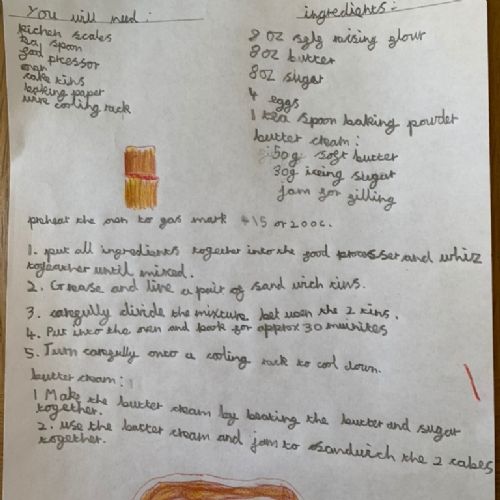 You will need:
kichen scales
tea spoon
food pressor
oven
cake tins
baking paper
wire cooling rack
ingredients:
8 oz self raising flour
8 oz butter
8 oz sugar
4 eggs
1 tea spoon baking powder
butter cream:
50g soft butter
30g iceing sugar
Jam for filling
preheat the oven to gas mark 4/5 or 200c.
1. put all ingredients together into the food processer and whiz
togeather until mixed.
2. Grease and line a pair of sand wich tins.
3. carefully divide the mixture bet ween the 2 tins.
4. Put into the oven and book for approx 30 muinites
5. Turn carefully onto a cooling rack to cool down.
butter cream:
1 Make the butter cream by beating the butter and sugar
together.
2. use the butter cream and jam to sandwich the 2 cakes
together.